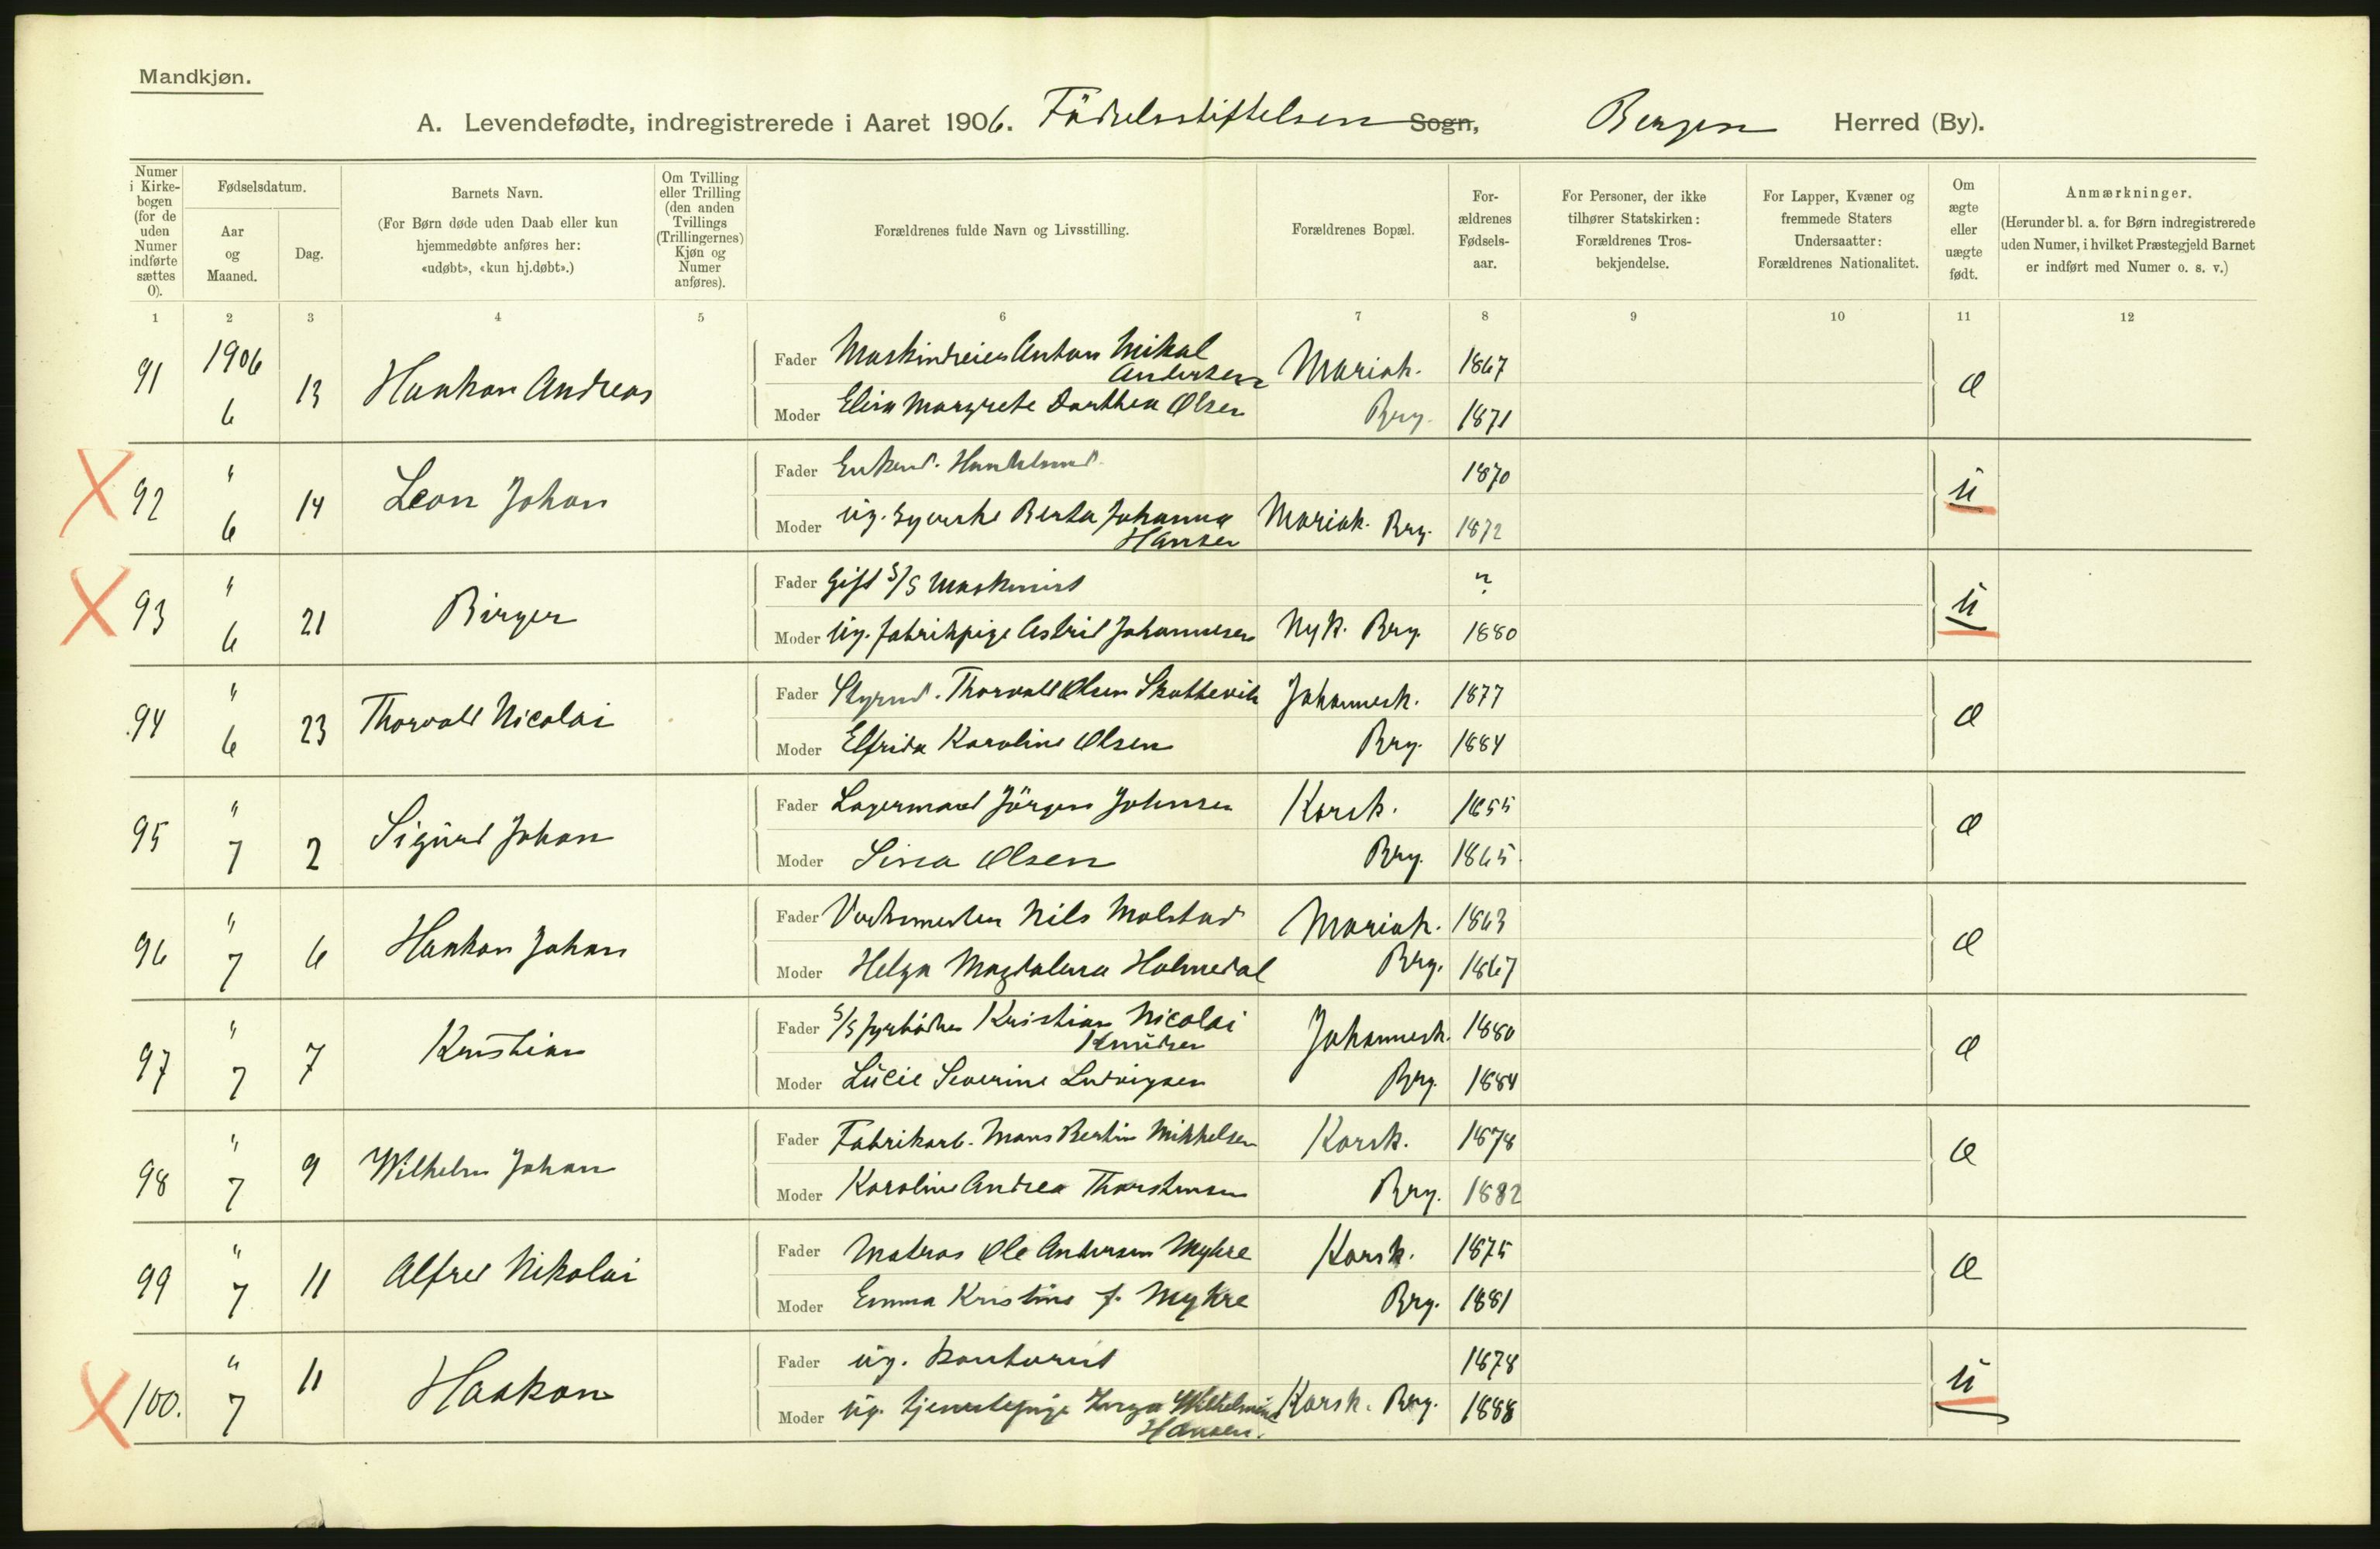 Mandkjøn.
A. Levendefødte, indregistrerede i Aaret 1906. Födselsstiftelsen Sogn, Bergen Herred (By).
Numer i Kirke-bogen (for de uden Numer indførte sættes 0).
Fødselsdatum.
Aar og Maaned.
Dag.
Barnets Navn.
(For Børn døde uden Daab eller kun hjemmedøbte anføres her: «udøbt», «kun hj.døbt».)
Om Tvilling eller Trilling (den anden Tvillings (Trillingernes) Kjøn og Numer anføres).
Forældrenes fulde Navn og Livsstilling.
Forældrenes Bopæl.
For-ældrenes Fødsels-aar.
For Personer, der ikke tilhører Statskirken: Forældrenes Tros-bekjendelse.
For Lapper, Kvæner og fremmede Staters Undersaatter: Forældrenes Nationalitet.
Om ægte eller uægte født.
Anmærkninger.
(Herunder bl. a. for Børn indregistrerede uden Numer, i hvilket Præstegjeld Barnet er indført med Numer o. s. v.)
1 2 3 4 5 6 7 8 9 10 11 12
91 1906 6 13 Haakon Andreas Fader Maskindreier Anton Mikal Andersen Mariak. 1867 æ
Moder Elisa Margrete Dorthea Olsen Brg. 1871
92 " 6 14 Leon Johan Fader Enkemd. Handelsmd. 1870 ü
Moder üg. Syerske Berta Johanna Hansen Mariak. Brg. 1872
93 " 6 21 Birger Fader Gift S/S Maskinist ? ü
Moder üg. fabrikpige Astrid Johannesen Nyk. Brg. 1880
94 " 6 23 Thorvald Nicolai Fader Styrmd. Thorvald Olsen Skottevik Johannesk. 1877 æ
Moder Elfrida Karoline Olsen Brg. 1884
95 " 7 2 Sigürd Johan Fader Lagermand Jörgen Johnsen Korsk. 1855 æ
Moder Sina Olsen Brg. 1865
96 " 7 6 Haakon Johan Fader Værksmester Nils Molstad Mariak. 1863 æ
Moder Helga Magdalena Holmedal Brg. 1867
97 " 7 7 Kristian Fader S/S fyrböder Kristian Nicolai Knüdsen Johannesk. 1880 æ
Moder Lücie Severine Ludvigsen Brg. 1884
98 " 7 9 Wilhelm Johan Fader Fabrikarb. Mons Bertin Mikkelsen Korsk. 1878 æ
Moder Karoline Andrea Thorstensen Brg. 1882
99 " 7 11 Alfred Nikolai Fader Matros Ole Andersen Myhre Korsk. 1875 æ
Moder Emma Kristine f. Myhre Brg. 1881
100. " 7 11 Haakon Fader üg. Kontorist 1878 ü
Moder üg. tjenestepige Inga Wilhelmine Hansen. Korsk. Brg. 1888